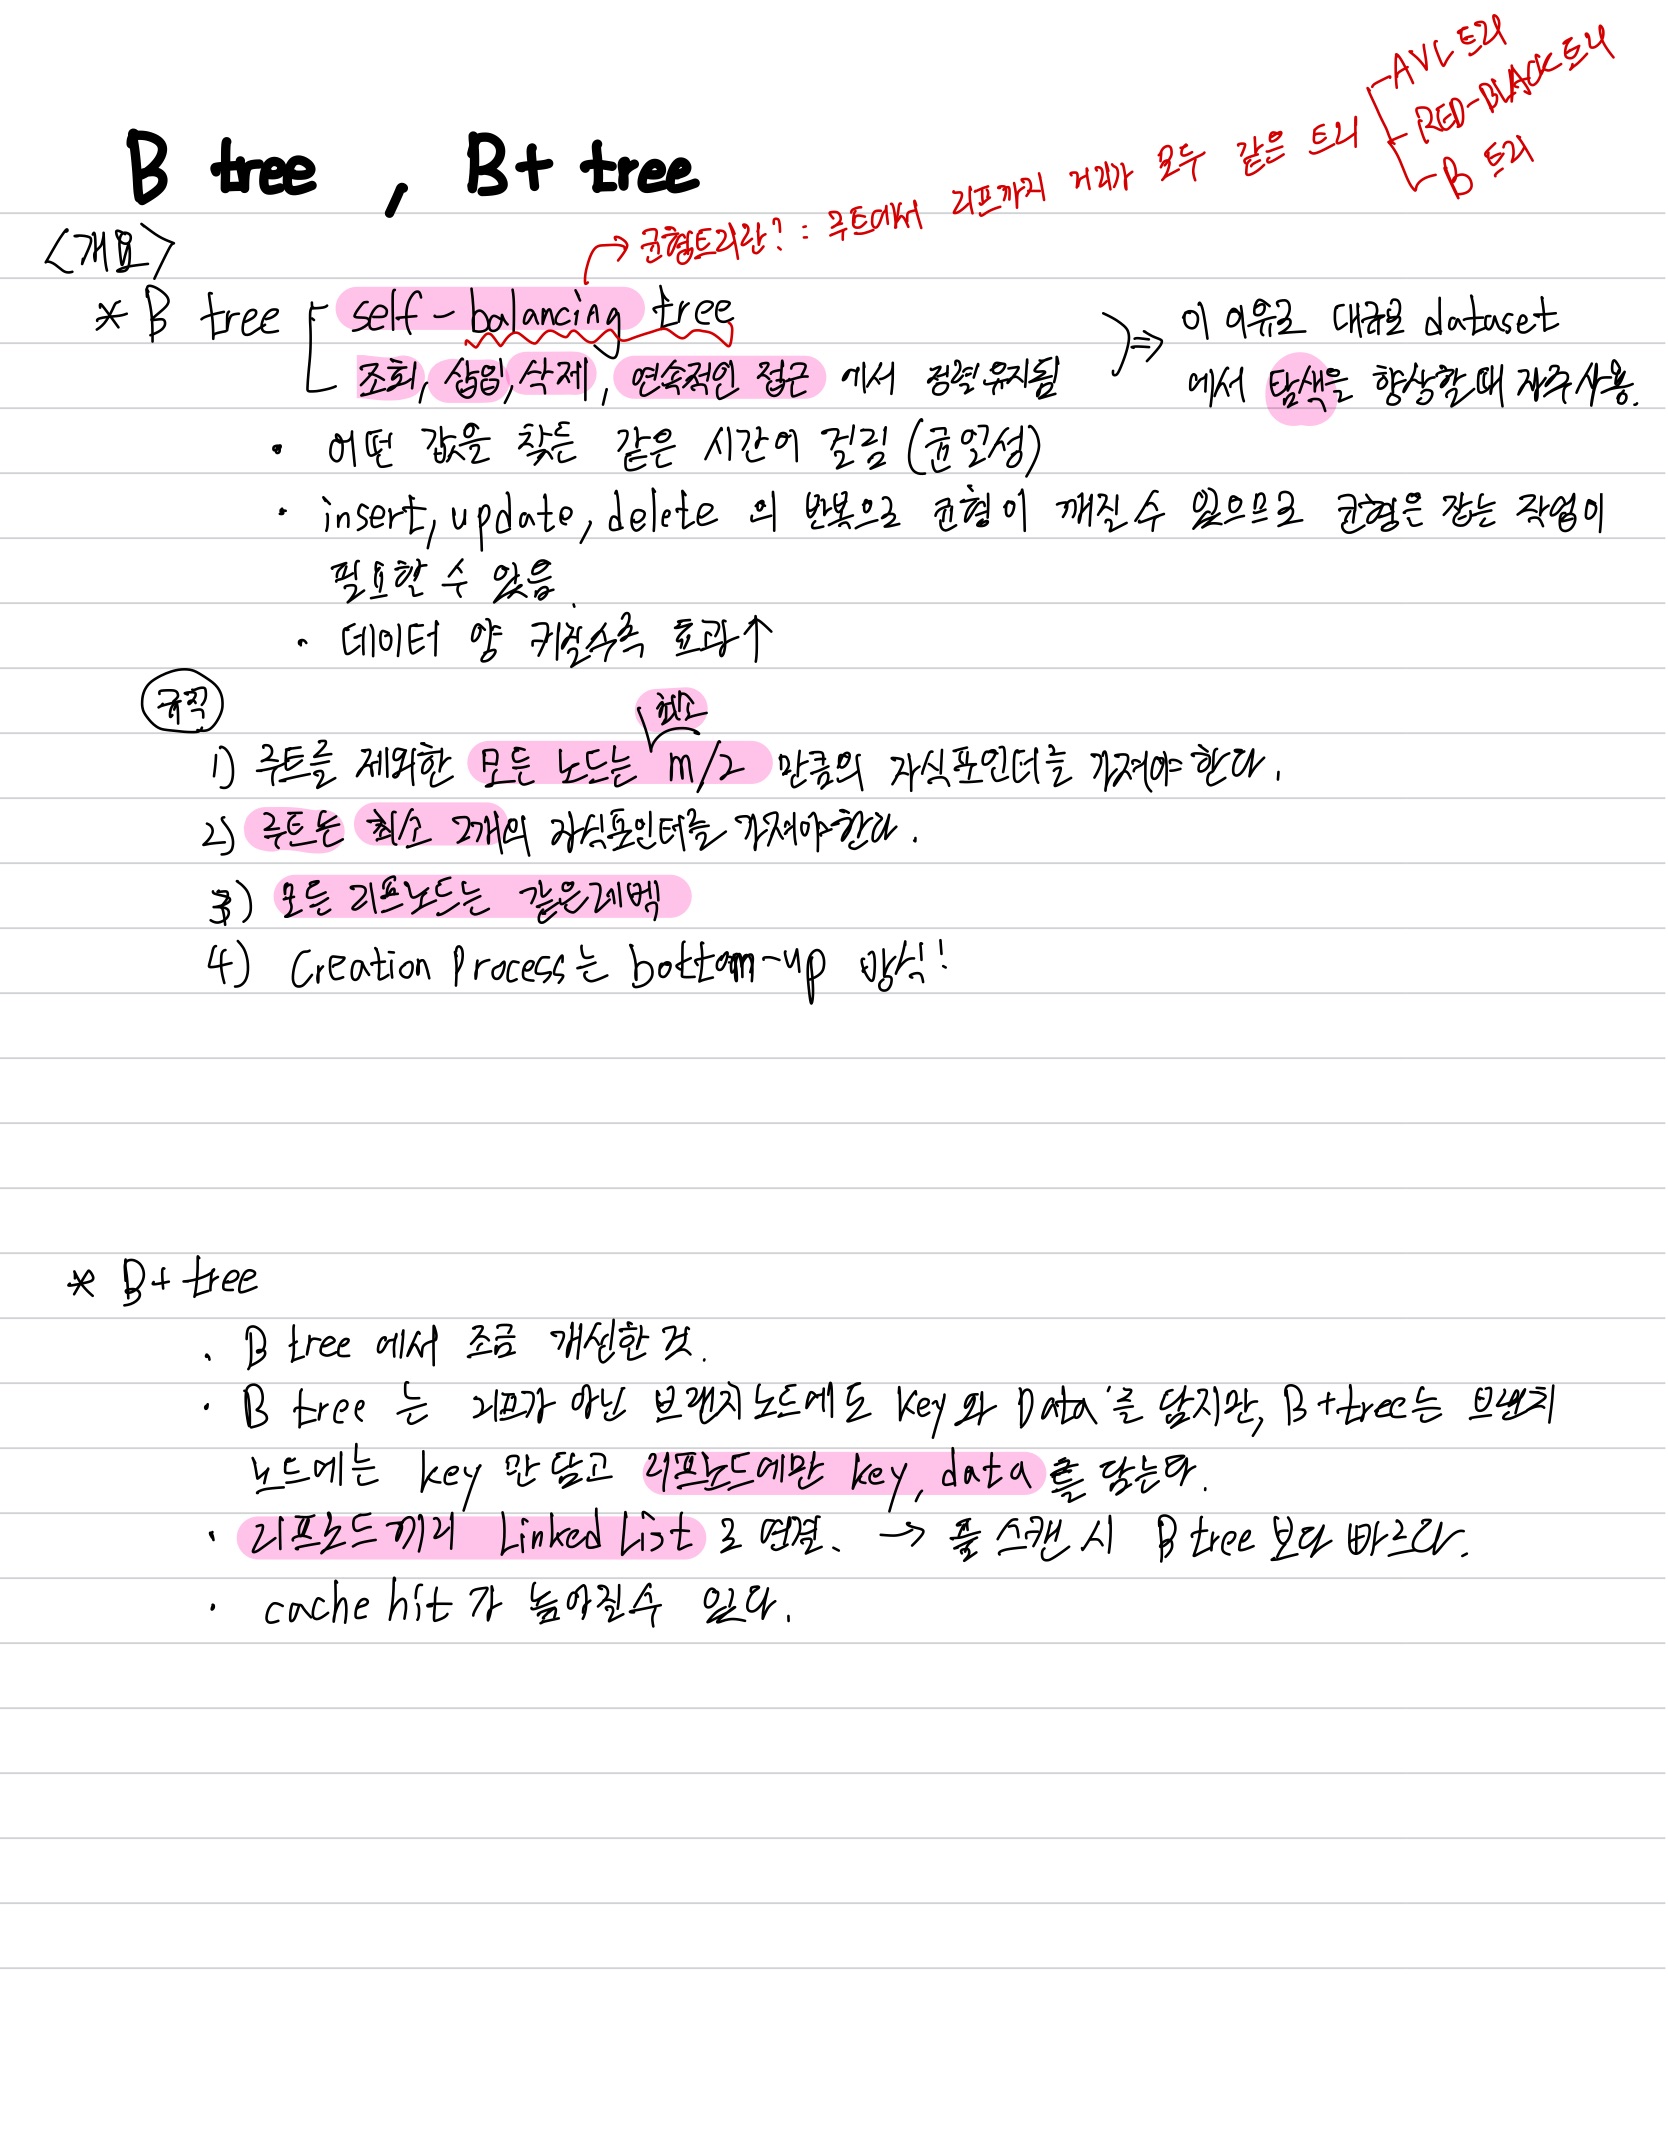 AVL 트리
RED-BLACK 트리
B 트리
B tree, B+ tree
→ 균형트리란? : 루트에서 리프까지 거리가 모두 같은 트리
<개요>
* B tree self-balancing tree
조회, 삽입, 삭제, 연속적인 접근 에서 정렬유지됨
⇒ 이 이유로 대규모 dataset
에서 탐색을 향상할때 자주사용.
· 어떤 값을 찾든 같은 시간이 걸림 (균일성)
· insert, update, delete 의 반복으로 균형이 깨질 수 있으므로 균형은 잡는 작업이
필요할 수 있음.
· 데이터 양 커질수록 효과↑
규칙
최소
1) 루트를 제외한 모든 노드는 m/2 만큼의 자식포인터를 가져야한다.
2) 루트는 최소 2개의 자식포인터를 가져야한다.
3) 모든 리프노드는 같은레벨
4) Creation Process는 bottom-up 방식!
* B+ tree
· B tree 에서 조금 개선한 것.
· B tree 는 리프가 아닌 브랜치노드에도 key와 Data를 담지만, B+tree는 브랜치
노드에는 key 만 담고 리프노드에만 key, data를 담는다.
· 리프노드끼리 Linked List로 연결. → 풀 스캔 시 B tree 보다 빠르다.
· cache hit가 높아질수 있다.